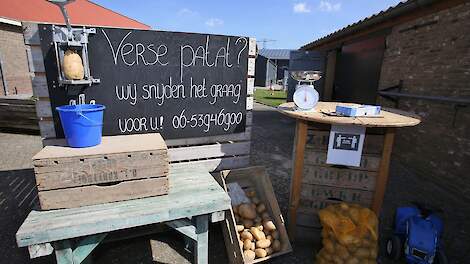 Verse patat?
wij snijden het graag
voor u! 06-53946900